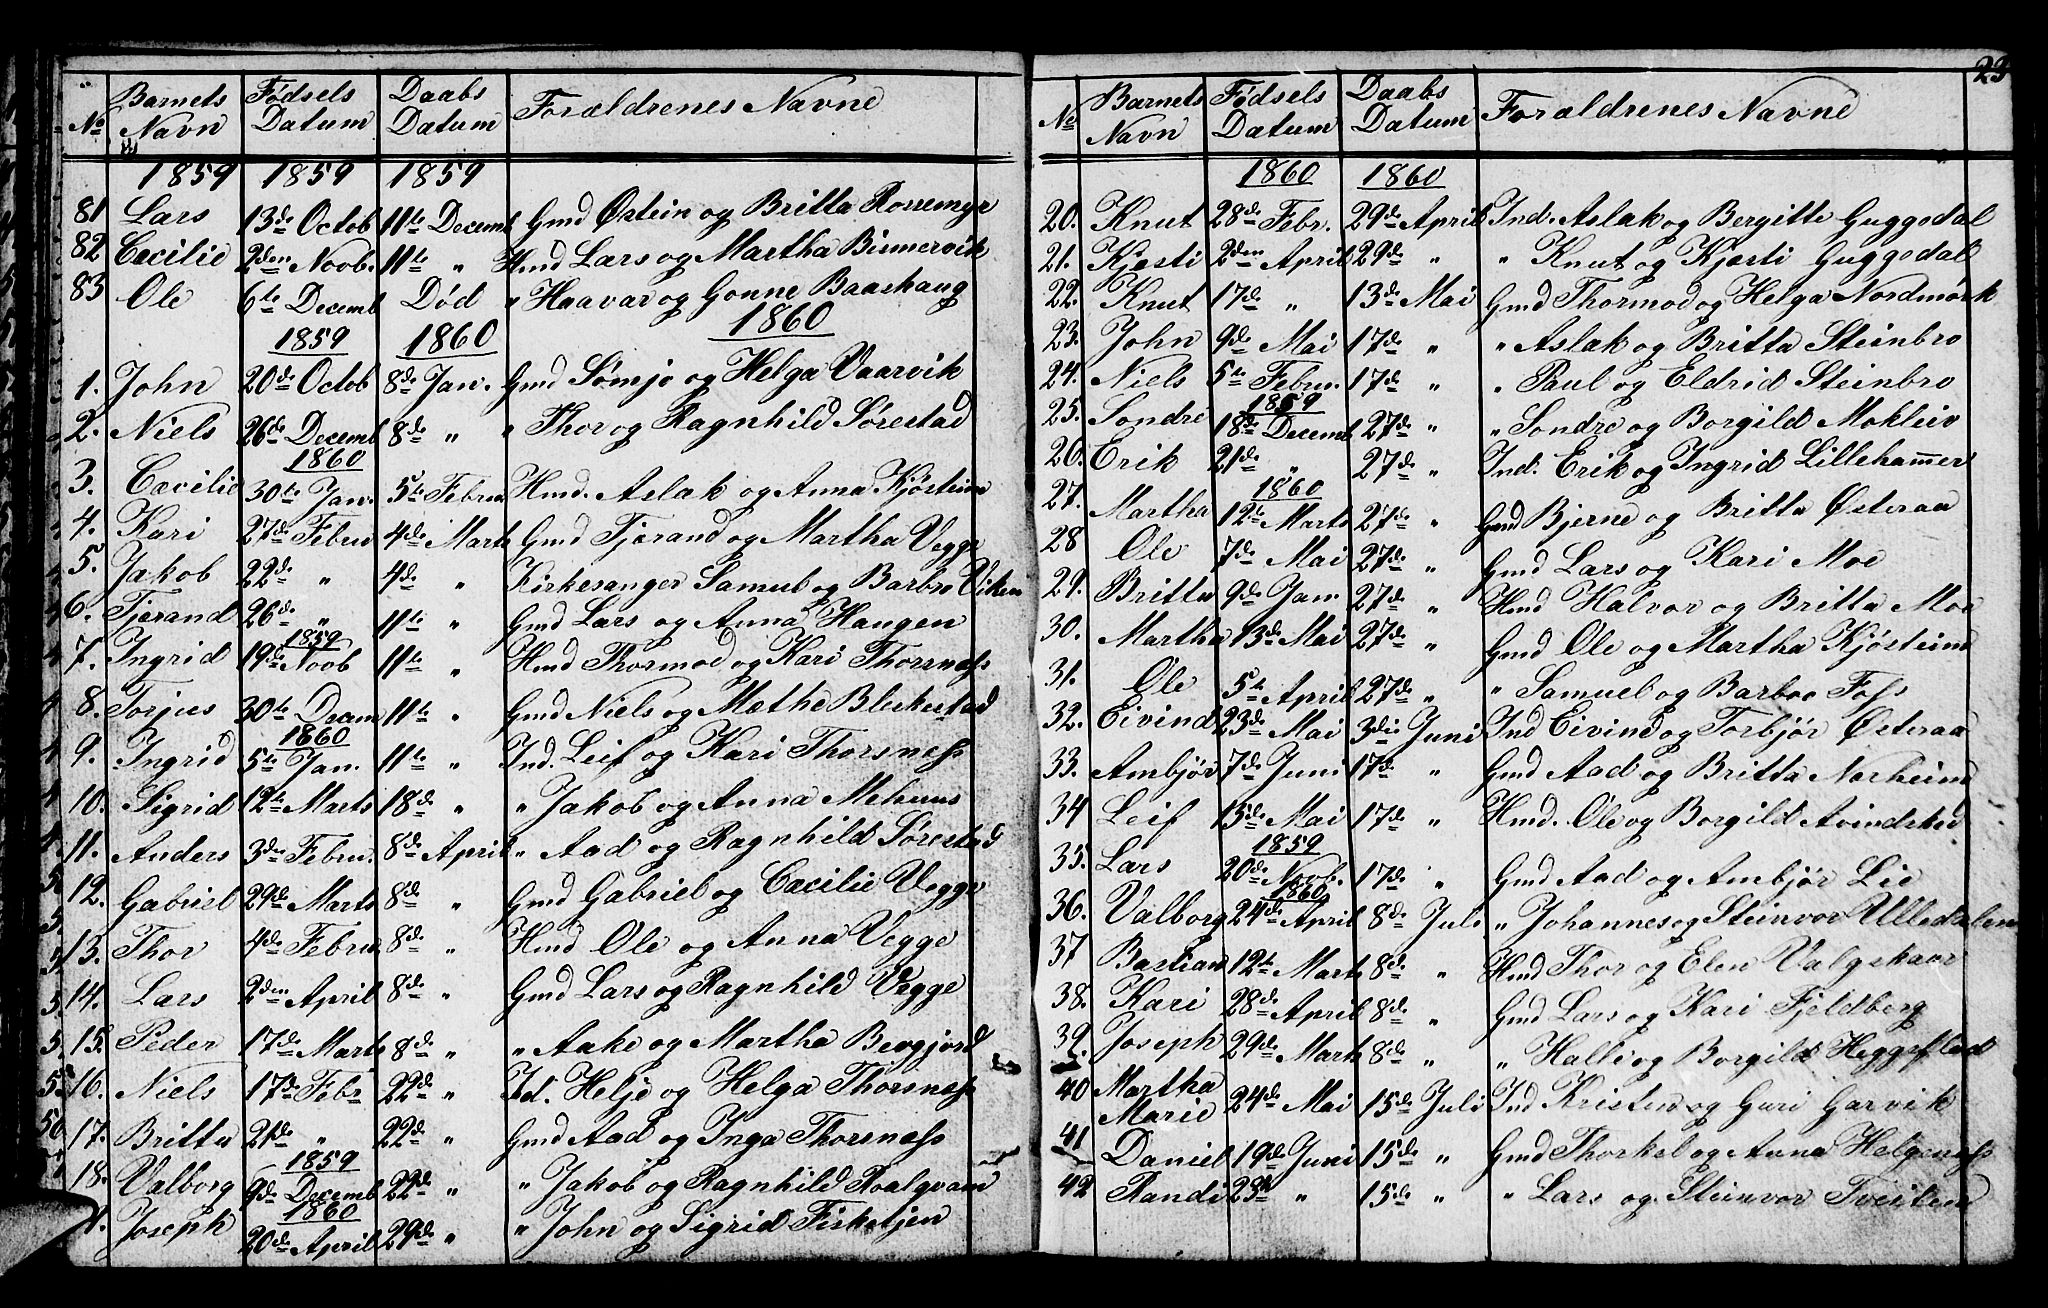 No Barnets Navn Fødsels Datum Daabs Datum Forældrenes Navne
1859 1859 1859
81 Lars 13de Octob 11te Decemb Gmd Østein og Britta Rossemyr
82 Cecilie 2den Novb. 11te " Hmd Lars og Martha Birmervik
83 Ole 6te Decemb Død " Haavar og Gonne Baashaug
1859 1860 1860
1. John 20de Octob 8de Jan. Gmd Sømje og Helga Vaarvik
2. Niels 26de Decemb 8de " " Thor og Ragnhild Sørestad
1860
3. Cacilie 30te Jan. 5te Febru Hmd. Aslak og Anna Kjøsteim
4. Kari 27de Febru 4de Marts Gmd Tjerand og Martha Vegge
5. Jakob 22de " 4de " Kirkesanger Samuel og Barbro Viken
6. Tjerand 26de " 11te " Gmd Lars og Anna Haugen
1859
7. Ingrid 19de Novb 11te " Hmd Thormod og Kari Thorsness
8. Torjus 30te Decem 11te " Gmd Niels og Methe Bleikestad
1860
9. Ingrid 5te Jan. 11te " Ind. Leif og Kari Thorsness
10. Sigrid 12te Marts 18de " " Jakob og Anna Mehuus
11. Anders 3die Febru. 8de April " Aad og Ragnhild Sørestad
12. Gabriel 29de Marts 8de " Gmd Gabriel og Cacilie Vegge
13. Thor 4de Febru 8de " Hmd Ole og Anna Vegge
14. Lars 2den April 8de " Gmd Lars og Ragnhild Vegge
15. Peder 17de Marts 8de " " Aake og Martha Bergjord
16. Niels 17de Febr 22de " Id. Helje og Helga Thorsness
17. Britta 21de " 22de " Gmd Aad og Inga Thorsness
1859
18. Valborg 9de Decemb 22de " " Jakob og Ragnhild Roalqvam
1860
Joseph 20de April 29de " " John og Sigrid Fisketjen
23
No Barnets Navn Fødsels Datum Daabs Datum Forældrenes Navne
1860 1860
20. Knut 28de Febr. 29de April Ind. Aslak og Bergitte Guggedal
21. Kjesti 2den April 29de " " Knut og Kjesti Guggedal
22. Knut 17de " 13de Mai Gmd Thormod og Helga Nordmørk
23. John 9de Mai 17de " " Aslak og Britta Steinbro
24. Niels 5te Febru. 17de " " Paul og Eldrid Steinbro
1859
25. Sondre 18de Decemb 27de " " Sondre og Borgild Mokleiv
26. Erik 21de " 27de " Ind. Erik og Ingrid Lillehammer
1860
27. Martha 12te Marts 27de " Gmd Bjerne og Britta Østeraa
28 Ole 7de Mai 27de " Gmd Lars og Kari Moe
29. Britta 9de Jan. 27de " Hmd Halvor og Britta Moe
30. Martha 13de Mai 27de " Gmd Ole og Martha Kjøsteim
31. Ole 5te April 27de " " Samuel og Barbro Foss
32. Eivind 23de Mai 3die Juni Ind Eivind og Torbjør Østeraa
33. Ambjør 7de Juni 17de " Gmd Aad og Britta Norheim
34 Leif 15de Mai 17de " Hmd. Ole og Borgild Avindsked
1859
35. Lars 20de Novb. 17de " Gmd Aad og Ambjør Lie
1860
36. Valborg 24de April 8de Juli " Johannes og Steinvor Ulledalen
37 Bastian 12te Marts 8de " Hmd Thor og Elen Valgskaar
38. Kari 28de April 8de " Gmd Lars og Kari Fjeldberg
39. Joseph 29de Marts 8de " " Halle og Borgild Heggeflad
40 Martha Marie 24de Mai 15de Juli Ind Kristen og Guri Garvik
41 Daniel 19de Juni 15de " Gmd Thorkel og Anna Helgeness
42 Randi 23de " 15de " " Lars og Steinvor Tveiten